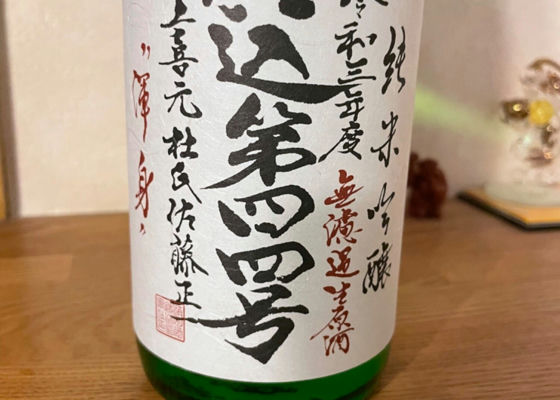 純米吟醸
無濾過生原酒
令和三年度
込第四四号
上喜元 杜氏 佐藤正一
"渾身"